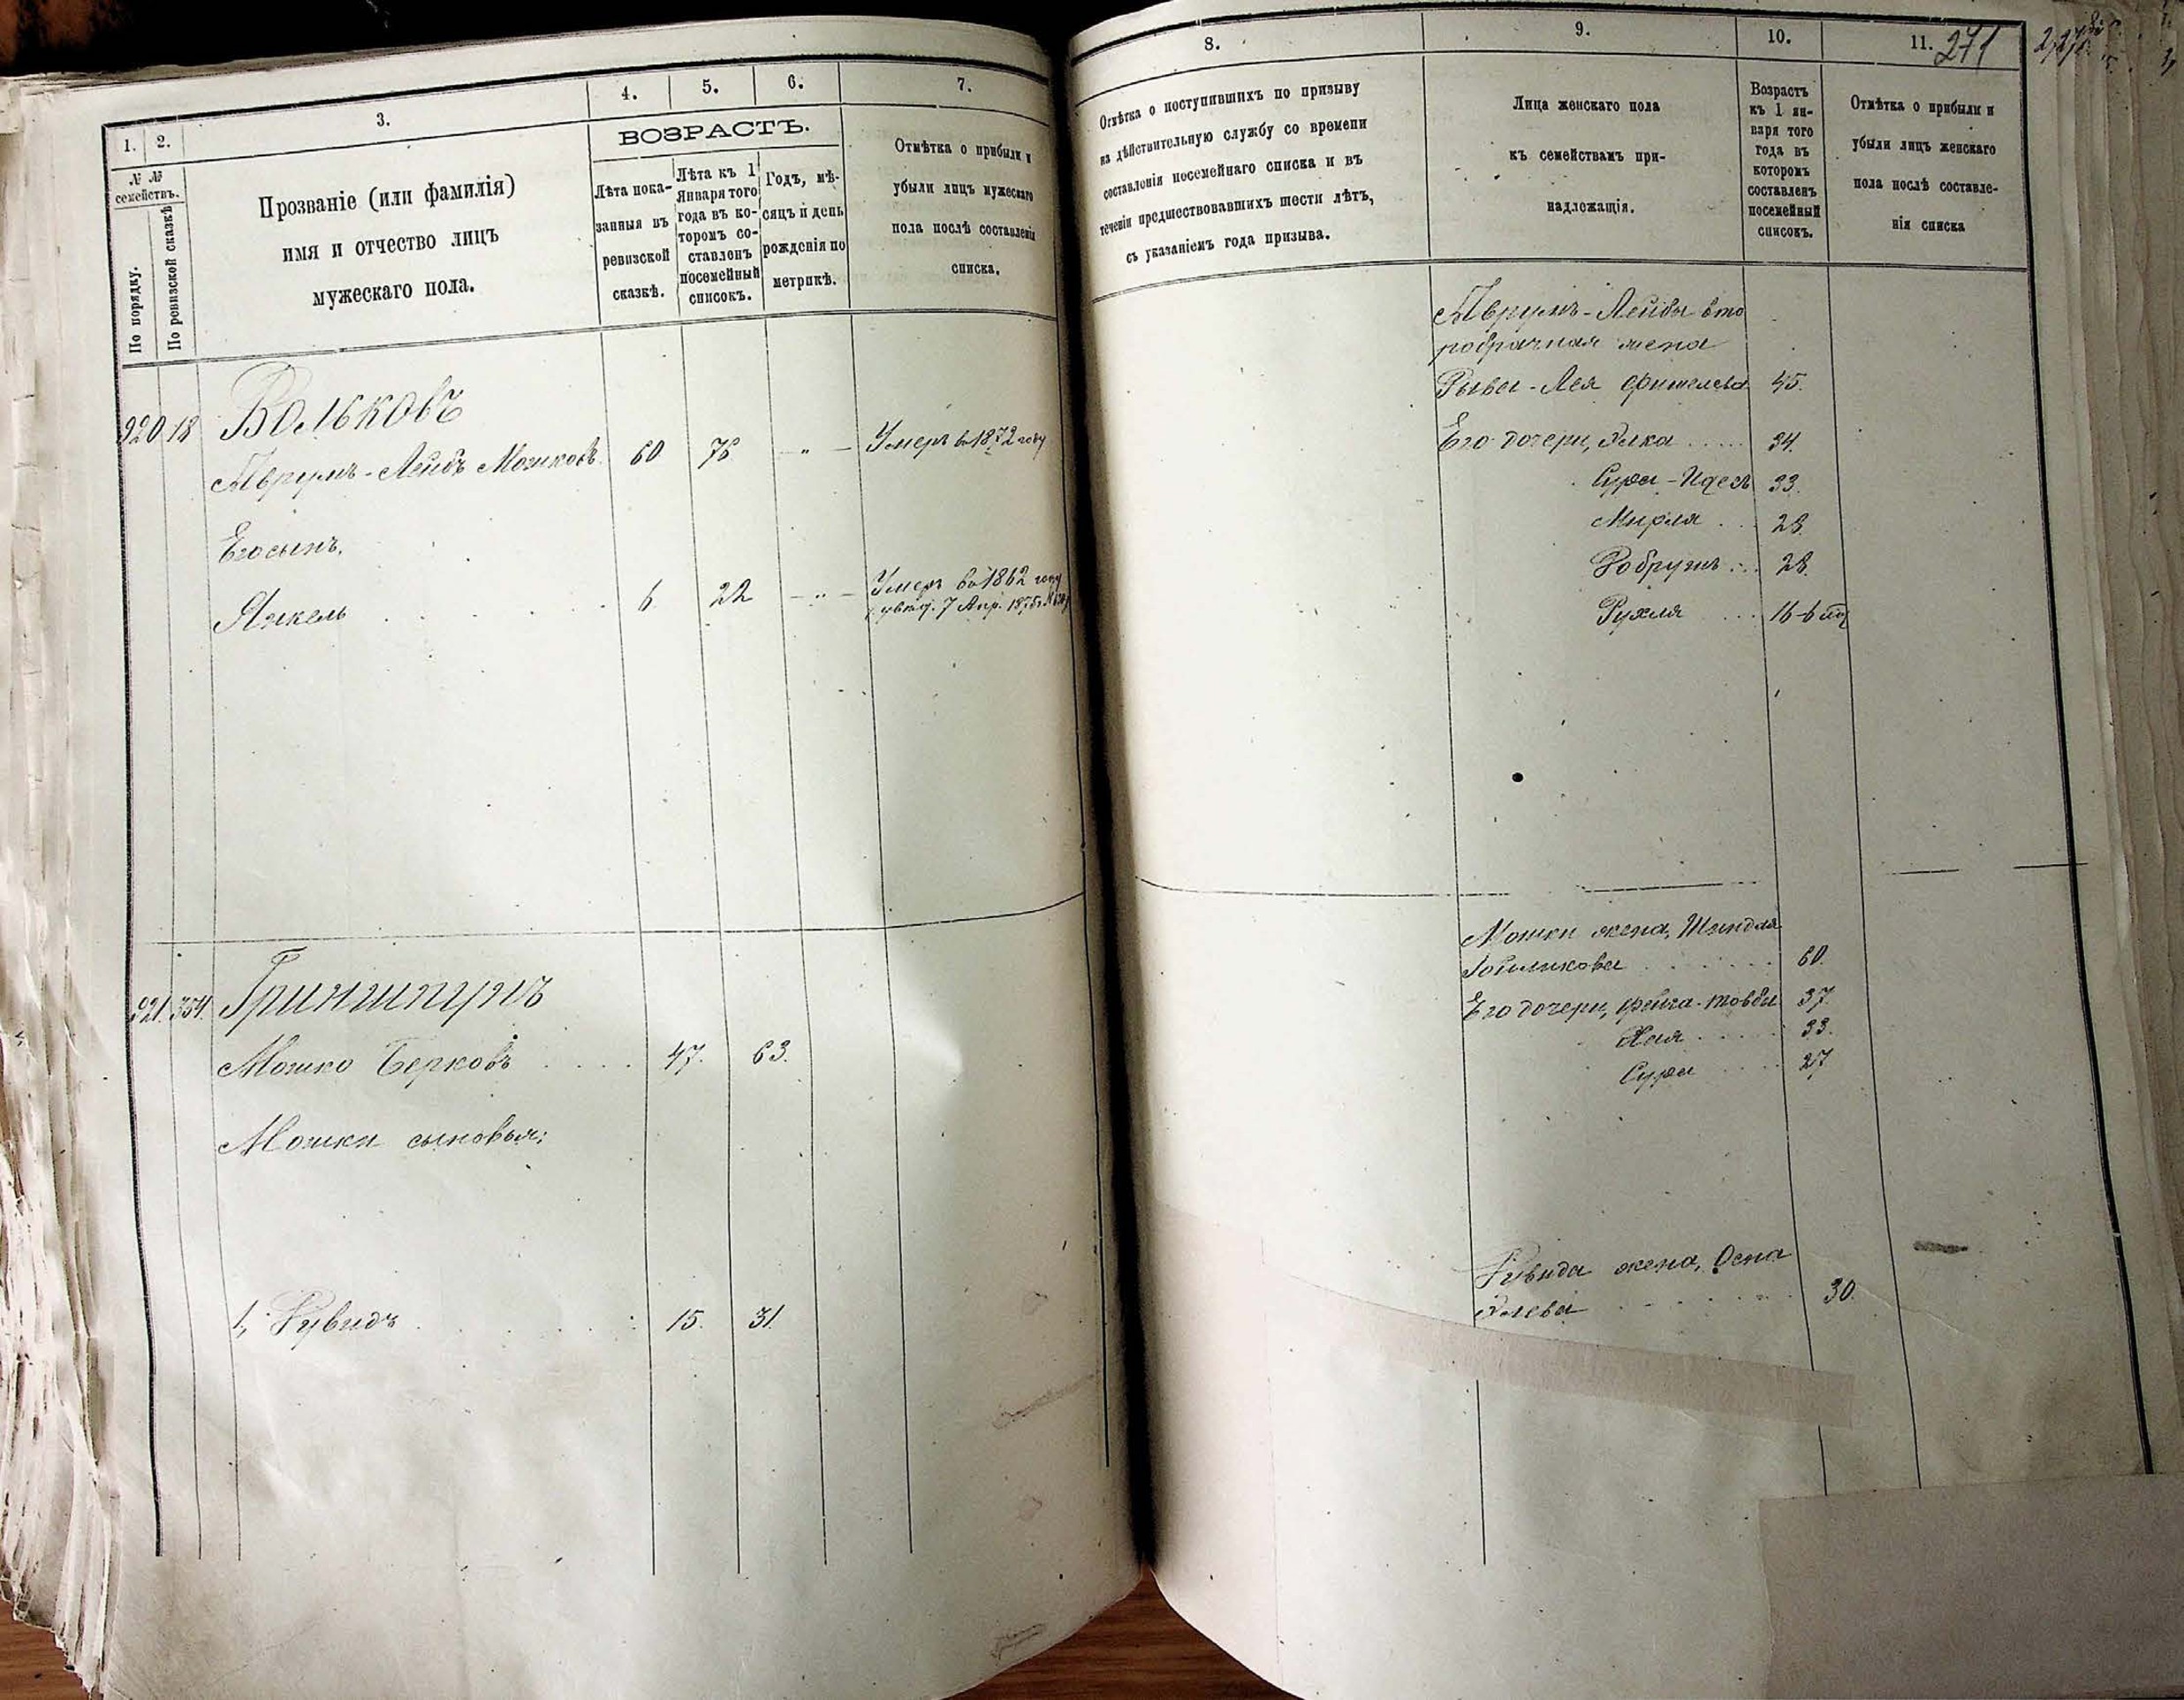 1.
2.
3.
4.
5.
6.
7.
№ №
семействъ.
По порядку.
По ревизской сказкѣ
Прозваніе (или фамилія)
имя и отчество лицъ
мужескаго пола.
ВОЗРАСТЪ.
Лѣта пока-
занныя въ
ревизской
сказкѣ.
Лѣта къ 1
Января того
года въ ко-
торомъ со-
ставленъ
посемейный
списокъ.
Годъ, мѣ-
сяцъ и день
рожденія по
метрикѣ.
Отмѣтка о прибыли и
убыли лицъ мужескаго
пола послѣ составленія
списка.
920 18 Вольковъ
Аврумъ-Лейбъ Мошковъ 60 76 — " — Умеръ въ 1872 году
Его сынъ,
Янкель 6 22 — " — Умеръ въ 1862 году
7 Апр. 1875
921. 354. Гриншпунъ
Мошко Берковъ 47. 63.
Мошки сыновья:
1, Рувидъ 15. 31.
8.
9.
10.
11. 271
Отмѣтка о поступившихъ по призыву
на дѣйствительную службу со времени
составленія посемейнаго списка и въ
теченіи предшествовавшихъ шести лѣтъ,
съ указаніемъ года призыва.
Лица женскаго пола
къ семействамъ при-
надлежащія.
Возрастъ
къ 1 ян-
варя того
года въ
которомъ
составленъ
посемейный
списокъ.
Отмѣтка о прибыли и
убыли лицъ женскаго
пола послѣ составле-
нія списка
Аврумъ-Лейбы вто
робрачная жена
Рыва-Лея Фишелева 45.
Его дочери, Элка 34.
Сура-Идесъ 33.
Мирля 28.
Добрушъ 28.
Рухля 16-6
Мошки жена, Шендля
60.
Его дочери, Фейга-Товба 37.
Хая 33.
Сура 27
Рувида жена, Осна
Элева 30.